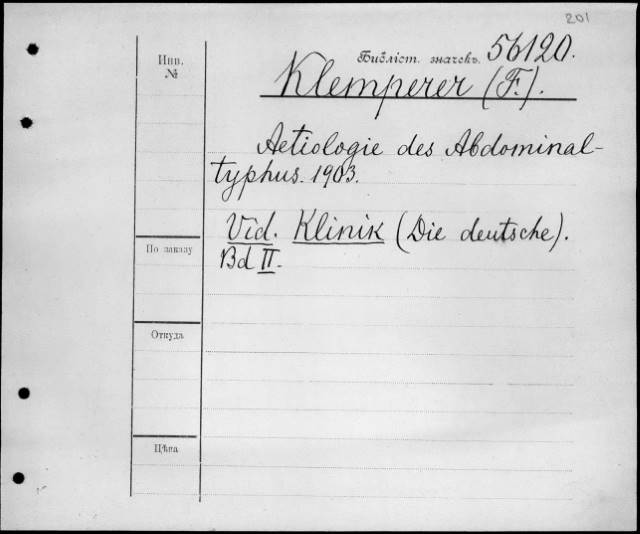 201
Инв.
№
Библіот. значекъ. 56120.
Klemperer (F.).
Aetiologie des Abdominal-
typhus. 1903.
Vid. Klinik (Die deutsche).
Bd II.
По заказу
Откуда
Цѣна